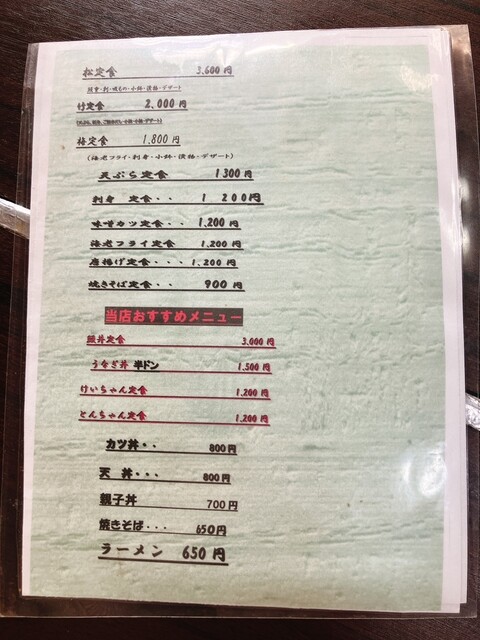 松定食 3,600円
竹定食 2,000円
梅定食 1,800円
(海老フライ・刺身・小鉢・漬物・デザート)
天ぷら定食 1300円
刺身 定食・・ 1 200円
味噌カツ定食・・ 1,200円
海老フライ定食 1,200円
唐揚げ定食・・・1,200円
焼きそば定食 900円
当店おすすめメニュー
定食 3,000円
うなぎ丼 半ドン 1,500円
けいちゃん定食 1,200円
とんちゃん定食 1,200円
カツ丼・・ 800円
天 丼・・・ 800円
親子丼 700円
焼きそば・・・ 650円
ラーメン 650円